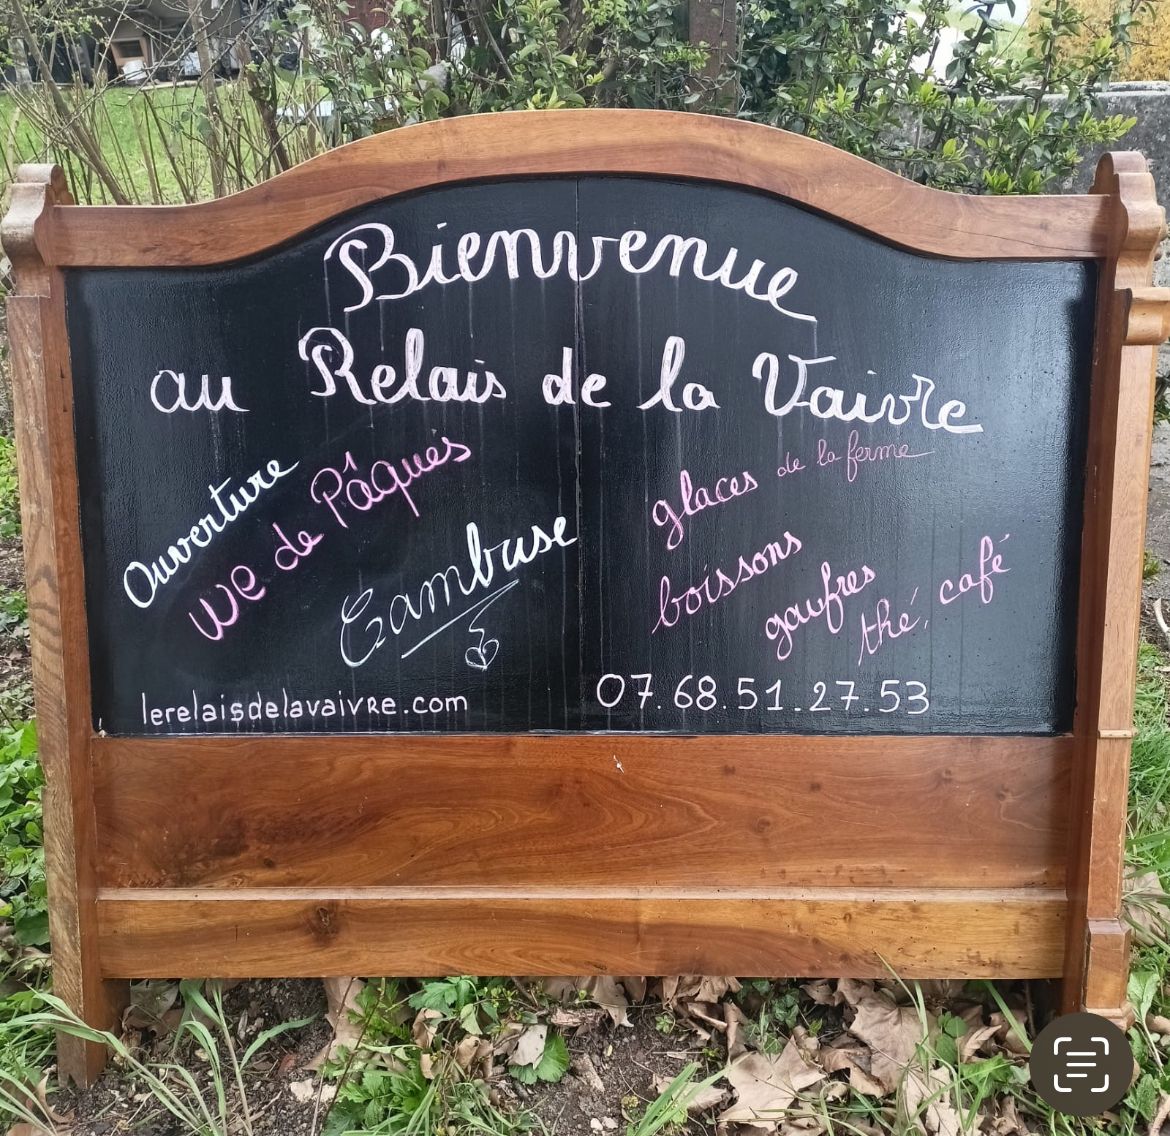 Bienvenue
au Relais de la Vaivre
Ouverture
WE de Pâques
Cambuse
lerelaisdelavaivre.com
glaces de la ferme
boissons
gaufres
thé, café
07.68.51.27.53